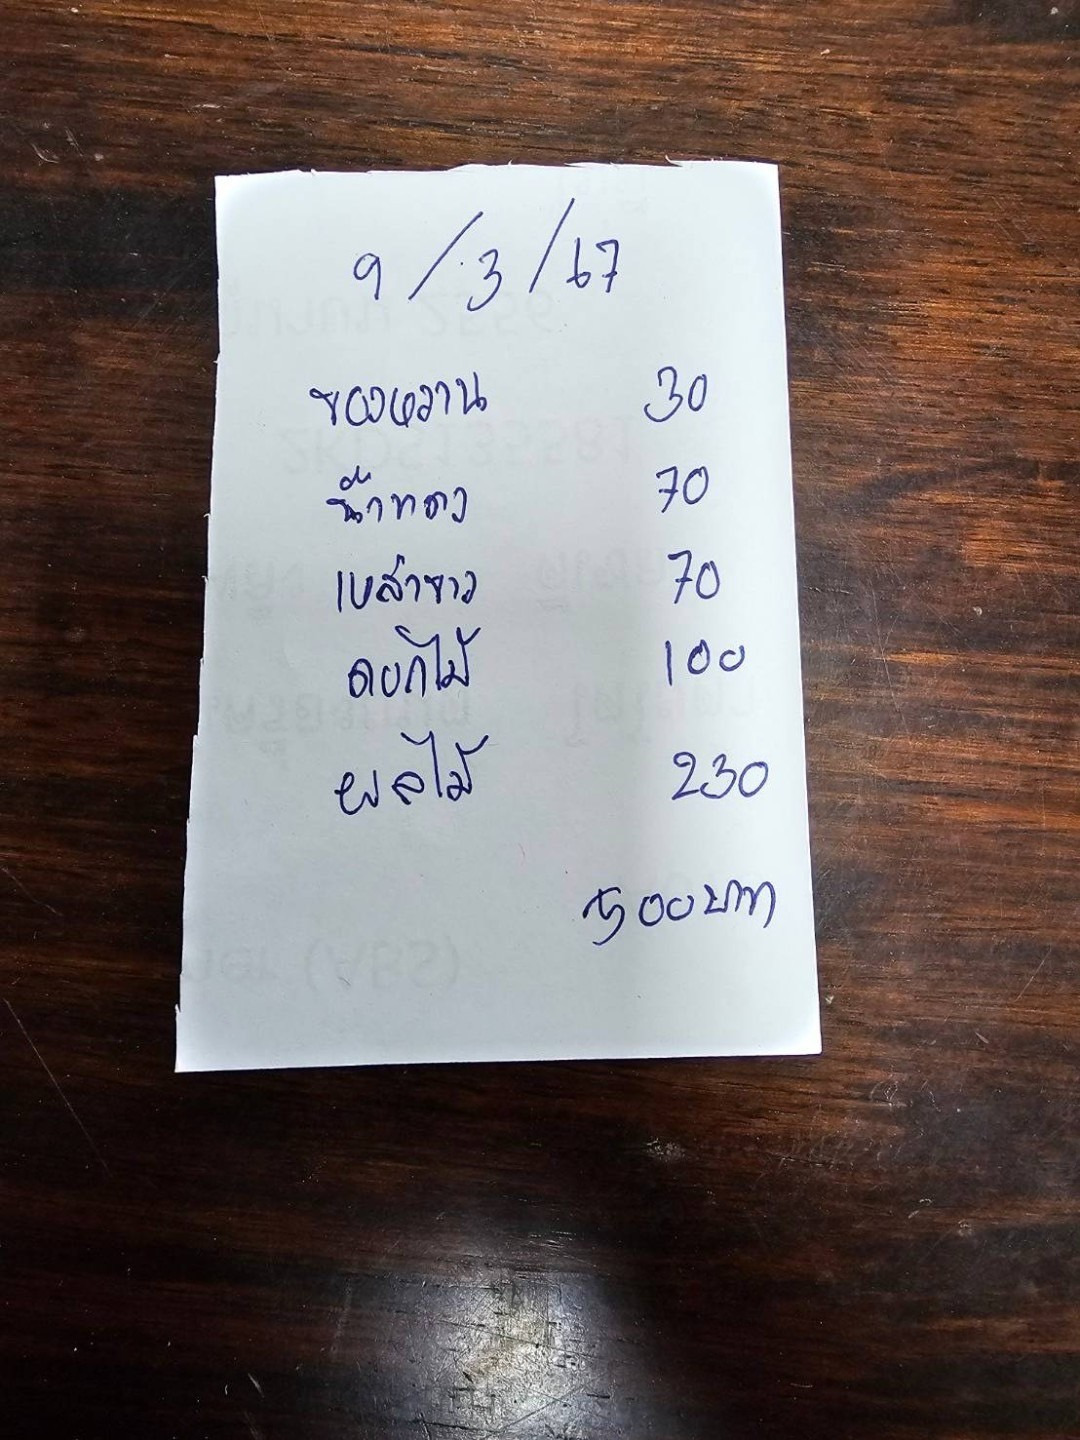 9/3/67
ของหวาน 30
น้ำแดง 70
เหล้าขาว 70
ดอกไม้ 100
ผลไม้ 230
500 บาท